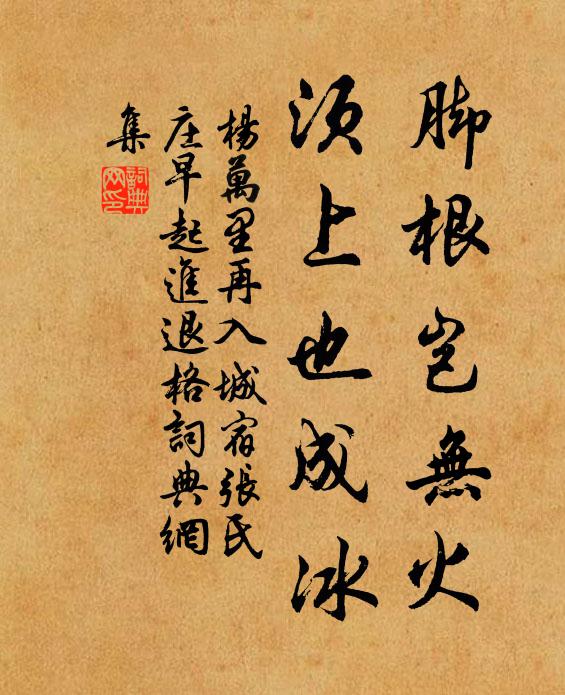 脚根岂無火
须上也成冰
楊萬里再入城宿張氏
庄早起進退格詞典網
集
詞典
网印